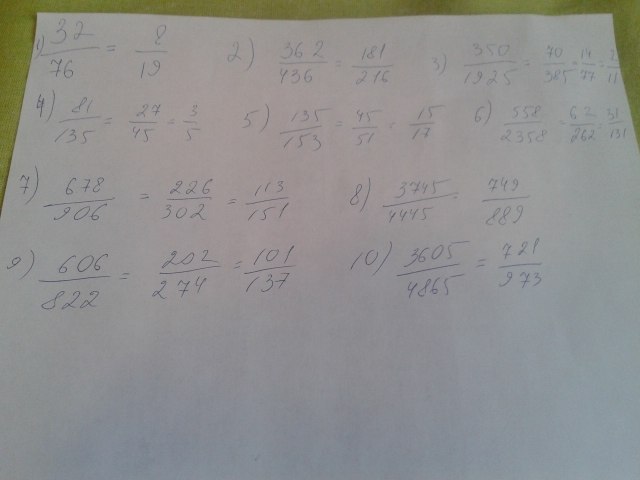 1) 32/76 = 8/19 2) 362/436 = 181/216 3) 350/1925 = 70/385 = 14/77 = 2/11
4) 81/135 = 27/45 = 3/5 5) 135/153 = 45/51 = 15/17 6) 558/2358 = 62/262 = 31/131
7) 678/906 = 226/302 = 113/151 8) 3745/4445 = 749/889
9) 606/822 = 202/274 = 101/137 10) 3605/4865 = 721/973